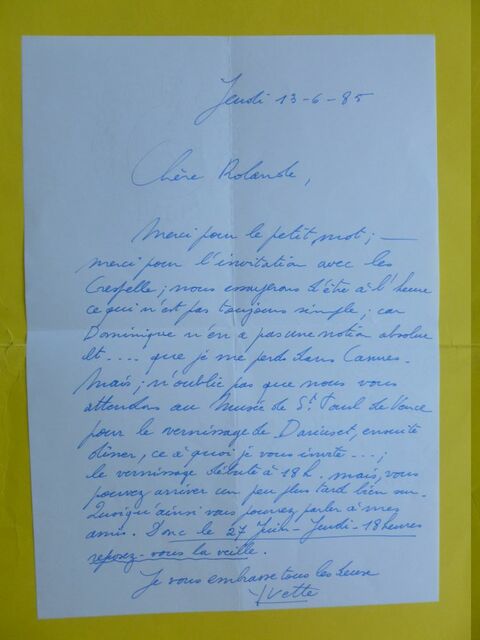 Jeudi 13-6-85
Chère Rolande,
Merci pour le petit mot ; —
merci pour l'invitation avec les
Crespelle ; nous essayerons d'être à l'heure
ce qui n'est pas toujours simple ; car
Dominique n'en a pas une notion absolue
et .... que je me perds dans Cannes.
Mais ; n'oublie pas que nous vous
attendons au Musée de St Paul de Vence
pour le vernissage de ensuite
dîner, ce à quoi je vous invite ... ;
le vernissage débute à 18h. mais, vous
pouvez arriver un peu plus tard bien sur.
Quoiqu'ainsi vous pouvez parler à mes
amis. Donc le 27 Juin - Jeudi - 18 heures
reposez-vous la veille.
Je vous embrasse tous les deux
Yvette